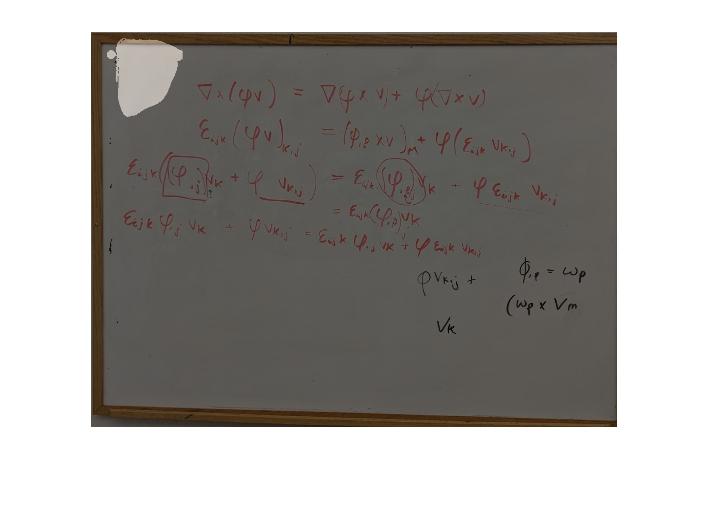 ∇×(φv) = ∇(φ × v) + φ(∇×v)
εijk (φv)k,j = (φ,p × v)m + φ(εijk vk,j)
εijk((φ,j)vk + φ vk,j) = εijk (φ,j)vk + φ εijk vk,j
= εijk(φ,p)vk
εijk φ,j vk + φ vk,j = εijk φ,j vk + φ εijk vk,j
φ vk,j + φ,p = wp
(wp × Vm
Vk